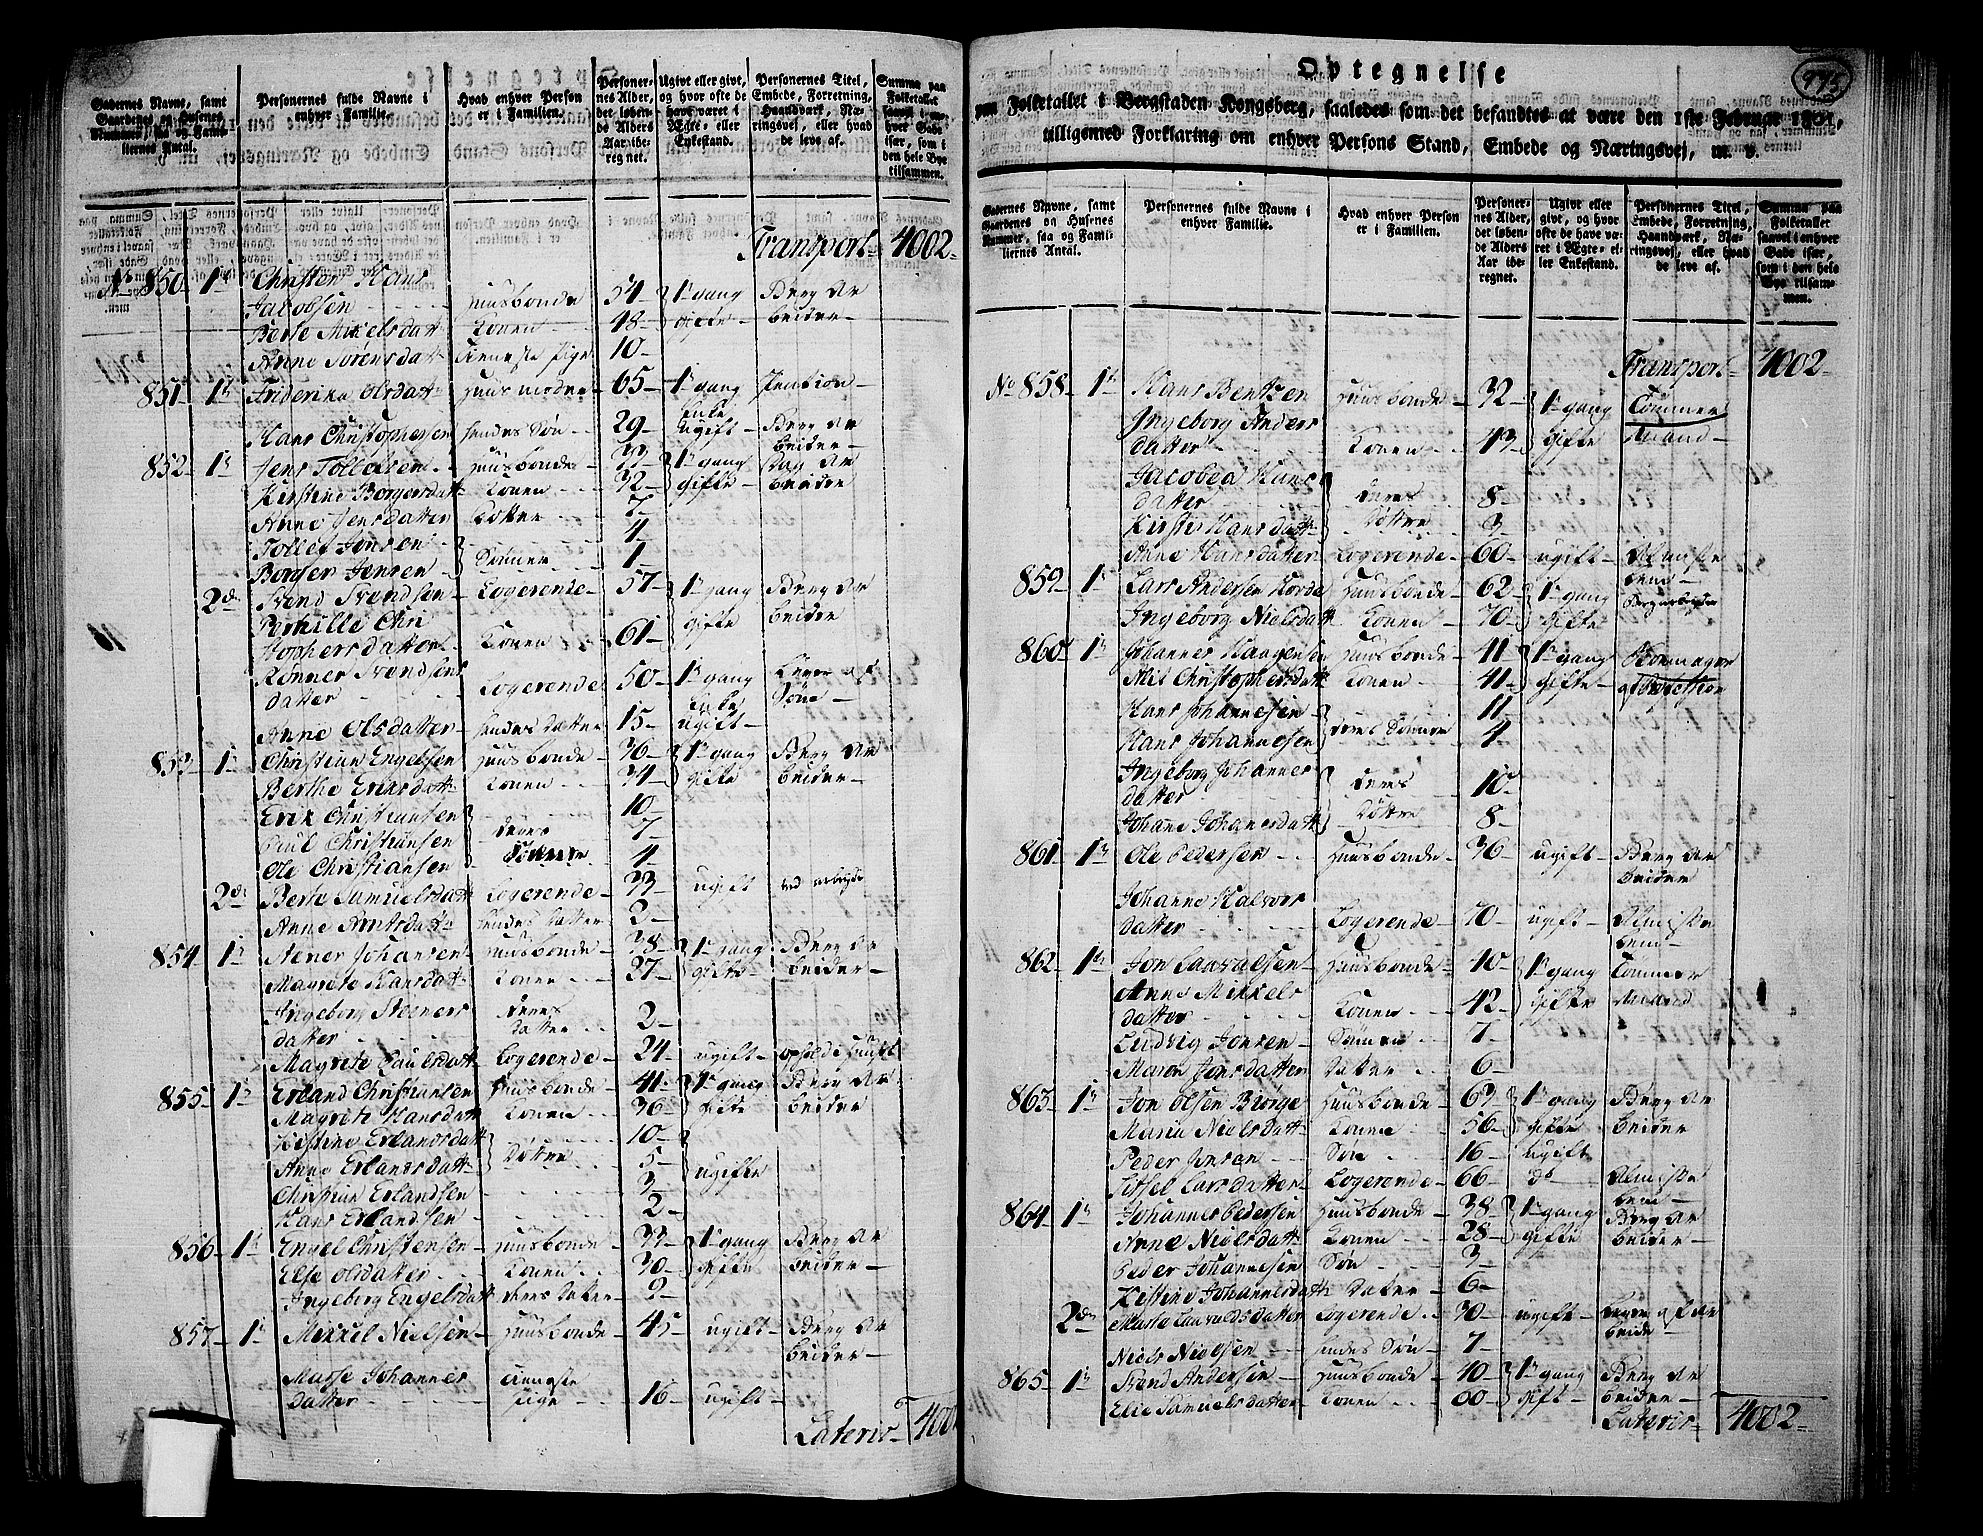 Gadernes Navne, samt Gaardenes og Husenes Nummer, saa og Familiernes Antal.
Personernes fulde Navne i enhver Familie.
Hvad enhver Person er i Familien.
Personernes Alder, det løbende Alders Aar iberegnet.
Ugivt eller givt, og hvor ofte de have været i Ægte- eller Enkestand.
Personernes Titel, Embede, Forretning, Haandværk, Næringsvej, eller hvad de leve af.
Summa paa Folketallet saavel i enhver Gade især, som i den hele Bye tilsammen.
Transport 4002
No 850 1 Christen Hans
Jacobsen Huusbonde 54 1 gang Berg Ar
Berte Mikelsdatt Konen 48 gifte beider
Anne Sørensdatt tieneste Pige 10
851 1 Friderika Olsdatt Huusmoder 65 1 gang Pention
Enke
Hans Christophersen hendes Søn 29 ugift Berg Ar
beider
852 1 Jens Tollefsen Huusbonde 33 1 gang Dag Ar
Kirstine Borgersdatt Konen 32 gifte beider
Anne Jensdatter Dotter 7
Tollef Jensen 4
Borger Jensen Sønner 1
2de Svend Svendsen Logerende 57 1 gang Berg Ar
Pernille Chri gifte beider
stophersdatter Konen 61
Rønner Svendsens 1 gang Lever af
datter Logerende 50 Enke Søne
Anne Olsdatter hendes Datter 15 ugift
853 1 Christian Engelsen Huusbonde 36 1 gang Berg Ar
Berthe Eriksdatt Konen 34 gifte beider
Erik Christiansen 10
Paul Christiansen deres 7
Ole Christiansen Sønner 4
2de Berte Samuelsdatt Logerende 33 ugift ved arbeyde
Anne Arntsdatt hendes Datter 2
854 1 Stener Johansen Huusbonde 38 1 gang Berg Ar
Magrete Hansdatt Konen 27 gifte beider
Ingeborg Steners deres
datter Datter 2
Magrete Paulsdatt Logerende 24 ugift
855 1 Erland Christiansen Huusbonde 41 1 gang Berg Ar
Magrete Hansdatt Konen 36 gifte beider
Kistine Erlandsdatt 10
Anne Erlandsdatt Døttre 5 ugifte
Christian Erlandsen 3
Hans Erlandsen 2
856 1 Engel Christensen Huusbonde 33 1 gang Berg Ar
Else Olsdatter Konen 30 gifte beider
Ingeborg Engelsdatt deres Datter 2
857 1 Mikkel Nielsen Huusbonde 45 ugift Berg Ar
beider
Masse Johannes tieneste
datter Pige 16 ugift
Lateris 4002
995
Optegnelse
paa Folketallet i Bergstaden Kongsberg, saaledes som det befandtes at være den 1ste Februar 1801,
tilligemed Forklaring om enhver Persons Stand, Embede og Næringsvej, m. v.
Gadernes Navne, samt Gaardenes og Husenes Nummer, saa og Familiernes Antal.
Personernes fulde Navne i enhver Familie.
Hvad enhver Person er i Familien.
Personernes Alder, det løbende Alders Aar iberegnet.
Ugivt eller givt, og hvor ofte de have været i Ægte- eller Enkestand.
Personernes Titel, Embede, Forretning, Haandværk, Næringsvej, eller hvad de leve af.
Summa paa Folketallet saavel i enhver Gade især, som i den hele Bye tilsammen.
Transport 4002
No 858 1 Hans Bentzen Huusbonde 32 1 gang Tømmer
Ingeborg Anders
datter Konen 43 gifte Mand
Jacobea Hans deres
datter Døttre 8
Kirsti Hansdatt 3
Anne Hansdatter Logerende 60 ugift Almisse
859 1 Lars Andersen Huusbonde 62 1 gang Bergarbeyder
Ingeborg Nielsdatt Konen 70 gifte
860 1 Johannes Haagensen Huusbonde 41 1 gang Skoemager
Christophersdatt Konen 41 gifte Profession
Hans Johannesen 11
Hans Johannesen deres Sønner 4
Ingeborg Johannes deres
datter 10
Johane Johanesdatt Døttre 8
861 1 Ole Pedersen Huusbonde 36 ugift Berg Ar
beider
Johanne Halvors
datter Logerende 70 ugift Almisse
862 1 Jon Laavalsen Huusbonde 40 1 gang Tømmer
Anne Mikkels
datter Konen 42 gifte Mand
Ludvig Jonsen Sønnen 7
Maren Jonsdatter Datter 6
863 1 Jon Olsen Biørge Huusbonde 63 1 gang Berg Ar
Maria Nielsdatt Konen 56 gifte beider
Peder Jonsen Søn 16 ugift
Sissel Larsdatter Logerende 66 do Almisse
864 1 Johannes Pedersen Huusbonde 38 1 gang Berg Ar
Anne Nielsdatt Konen 28 gifte beider
Peder Johannesen Søn 3
Kistine Johannesdatt Datter 6
2de Marte Laavaldsdatter Logerende 30 ugift Lever af Ar
beide
Niels Nielsen hendes Søn 7
865 1 Svend Andersen Huusbonde 40 1 gang Berg Ar
Elie Samuelsdatter Konen 60 gift beider
Lateris 4002